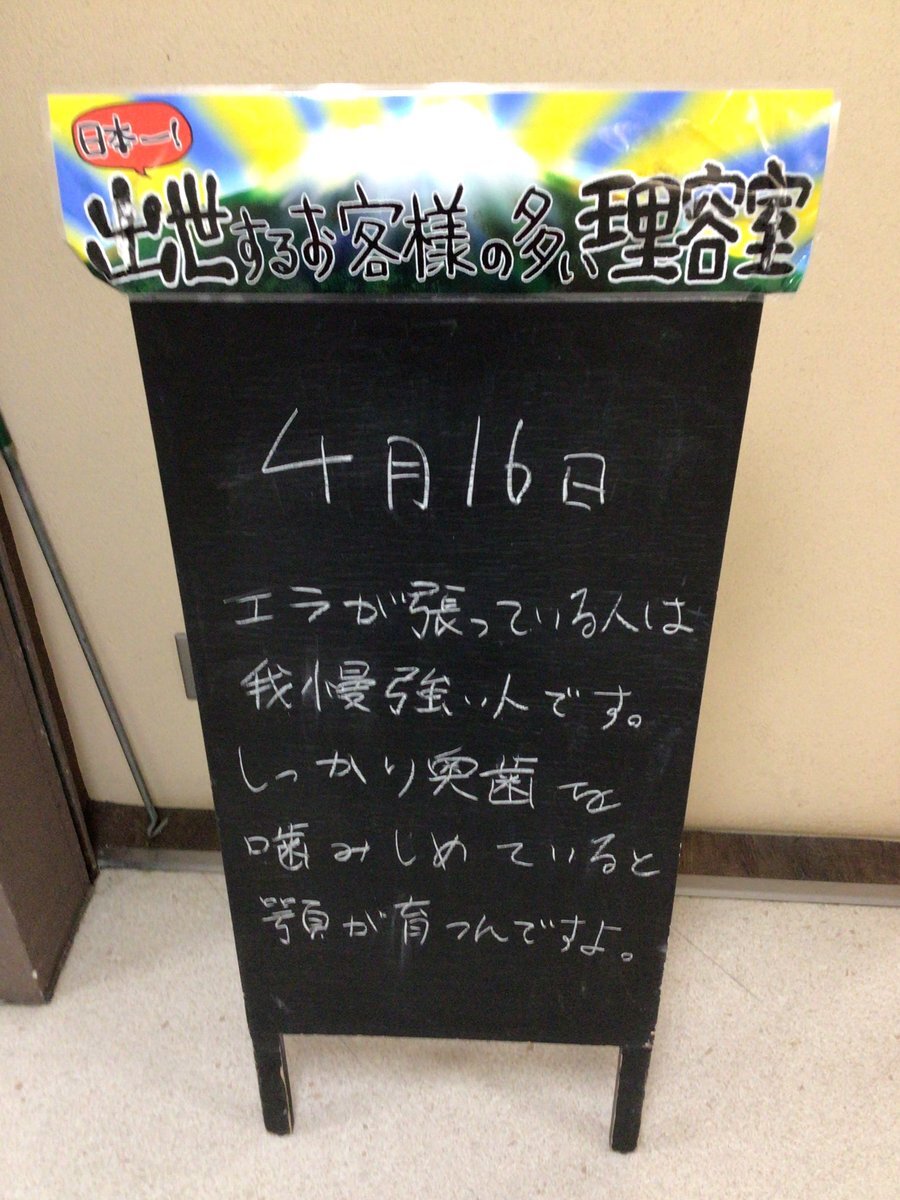 日本一!
出世するお客様の多い理容室
4月16日
エラが張っている人は
我慢強い人です。
しっかり奥歯を
噛みしめていると
顎が育つんですよ。